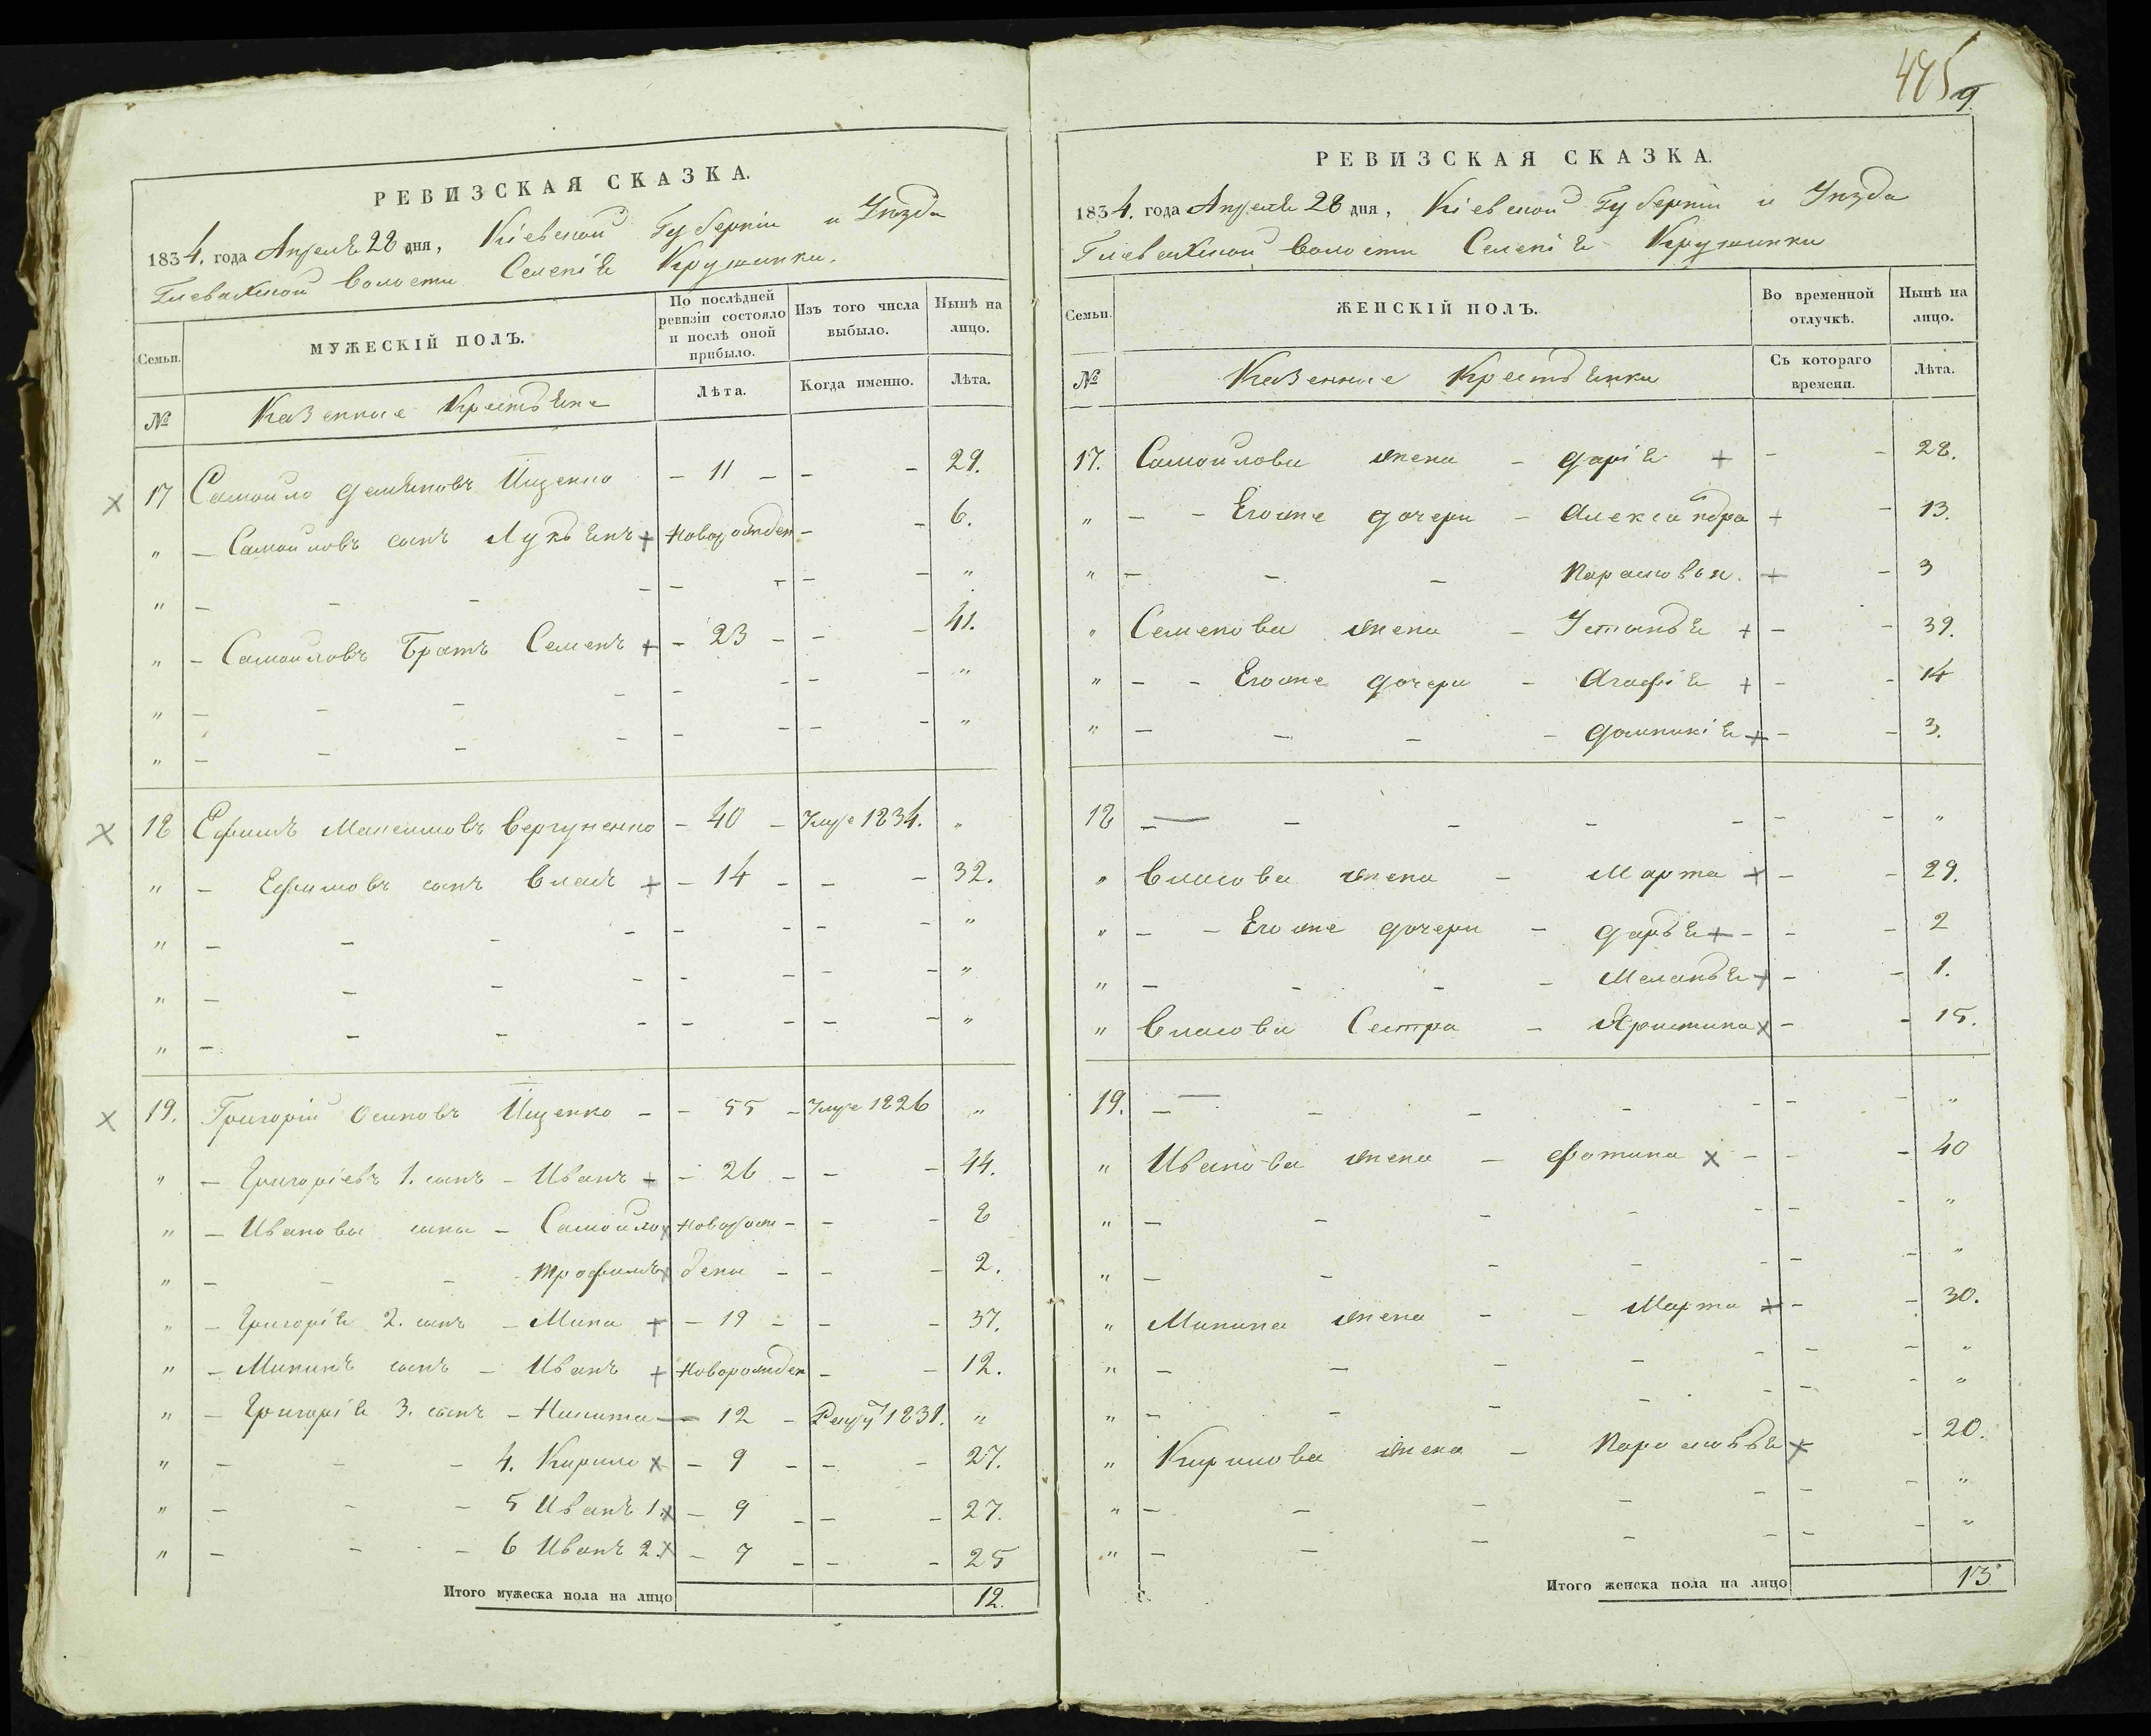 475
9
РЕВИЗСКАЯ СКАЗКА.
1834. года Апреля 28 дня, Кіевской Губерніи и Уезда
Глевахской волости Селенія Кружики.
Семьи. МУЖЕСКІЙ ПОЛЪ. По послѣдней ревизіи состояло и послѣ оной прибыло. Изъ того числа выбыло. Нынѣ на лицо.
№ Казенные Крестьяне Лѣта. Когда именно. Лѣта.
17 Самойло Демьяновъ Ищенко - 11 - - - 29.
" - Самойловъ сынъ Лукьянъ + Новорожден - - 6.
" - - - - - - - - "
" - Самойловъ Братъ Семенъ + - 23 - - - 41.
" - - - - - - - - "
" - - - - - - - - "
18 Ефимъ Максимовъ Вергуненко - 40 - Умре 1834. "
" - Ефимовъ сынъ Власъ + - 14 - - - 32.
" - - - - - - - - "
" - - - - - - - - "
" - - - - - - - - "
19. Григорій Осиповъ Ищенко - - 55 - Умре 1826 "
" - Григоріевъ 1. сынъ - Иванъ + - 26 - - - 44.
" - Ивановы сына - Самойло x Новорож - - - 8
" - - - - Трофимъ x дена - - - 2.
" - Григорія 2. сынъ - Мина + - 19 - - - 37.
" - Мининъ сынъ - Иванъ + Новорожден - - 12.
" - Григорія 3. сынъ - Никита - - 12 - 1831. "
" - - - 4. Кирило x - 9 - - - 27.
" - - - 5 Иванъ 1. x - 9 - - - 27.
" - - - 6 Иванъ 2. x - 7 - - - 25
Итого мужеска пола на лицо 12.
РЕВИЗСКАЯ СКАЗКА.
1834. года Апреля 28 дня, Кіевской Губерніи и Уезда
Глевахской волости Селенія Кружики
Семьи. ЖЕНСКІЙ ПОЛЪ. Во временной отлучкѣ. Нынѣ на лицо.
№ Казенные Крестьянки Съ котораго времени. Лѣта.
17. Самойлова жена - Дарія + - - 28.
" - - Егоже дочери - Александра + - 13.
" - - - Парасковья. + - 3
" Семенова жена - Устинья + - - 39.
" - - Егоже дочери - Агафія + - - 14
" - - - - Домникія + - - 3.
18 - - - - - - - "
" Власова жена - Марта x - - 29.
" - - Егоже дочери - Дарья + - - - 2
" - - - - Меланья + - - 1.
" Власова Сестра - Христина x - - 15.
19. - - - - - - - "
" Иванова жена - Фотина x - - - 40
" - - - - - - - "
" - - - - - - "
" Минина жена - - Марта x - - 30.
" - - - - - - - "
" - - - - - - - "
" Кирилова жена - Парасковья x - 20.
" - - - - - - "
" - - - - - - - "
Итого женска пола на лицо 13